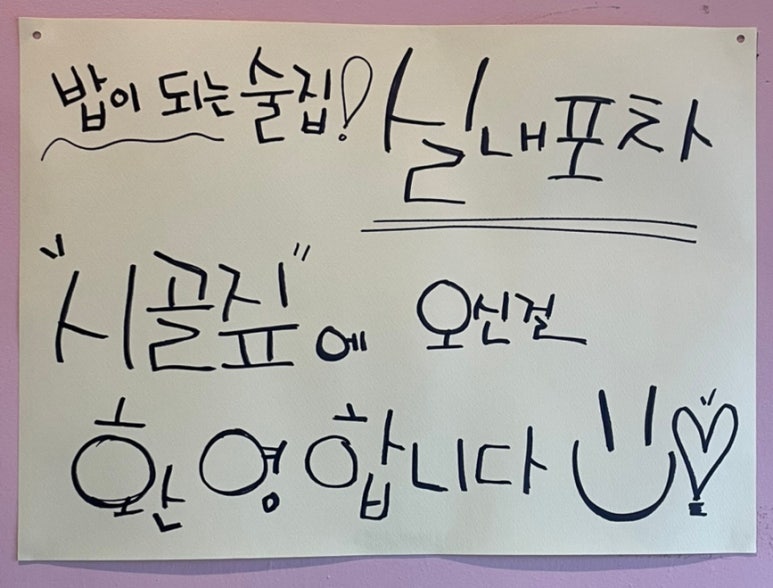 밥이 되는 술집! 실내포차
"시골짚"에 오신걸
환영합니다